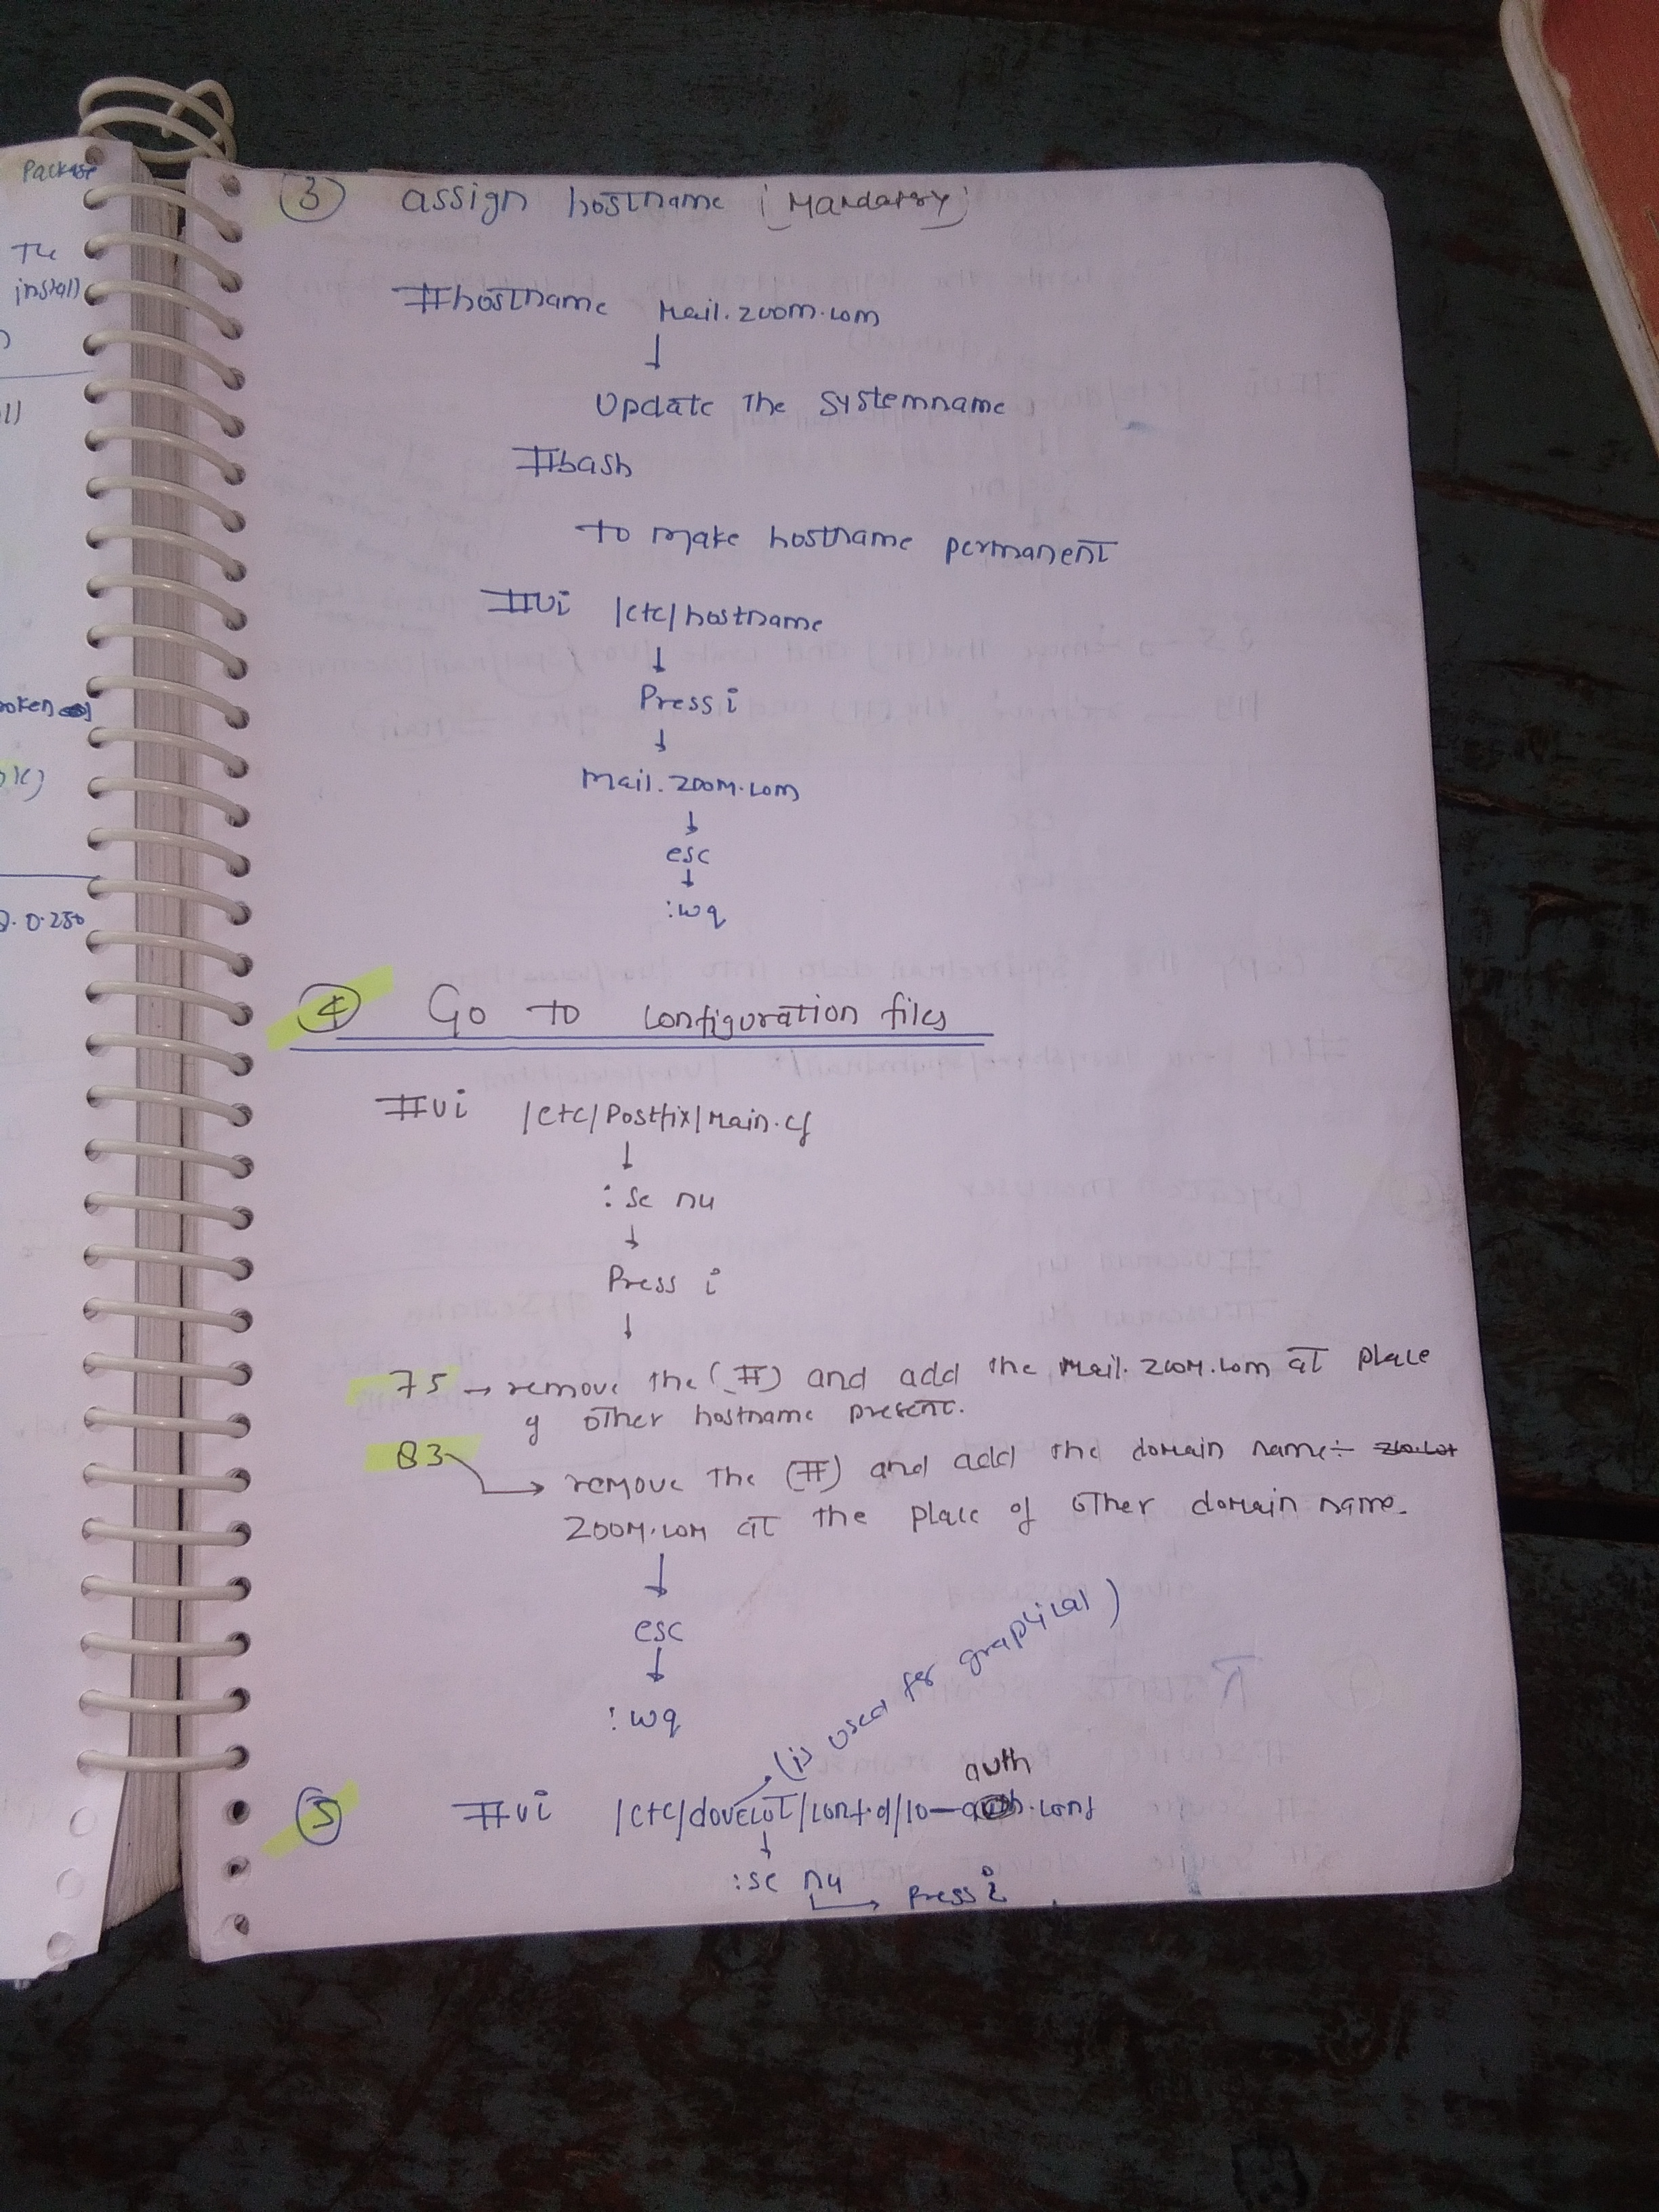 Package
The
install
2.0.250
③ assign hostname (Mandatory)
#hostname Mail.zoom.com
↓
Update the systemname
#bash
to make hostname permanent
#vi /etc/hostname
↓
Press i
↓
Mail.zoom.com
↓
esc
↓
:wq
④ Go to configuration files
#vi /etc/Postfix/Main.cf
↓
:se nu
↓
Press i
↓
75 → remove the (#) and add the Mail.zoom.com at place
of other hostname present.
83 → remove the (#) and add the domain name÷
zoom.com at the place of other domain name.
↓
esc
↓
:wq
(is used for graphical)
auth
⑤ #vi /etc/dovecot/conf.d/10-auth.conf
↓
:se nu
→ Press i